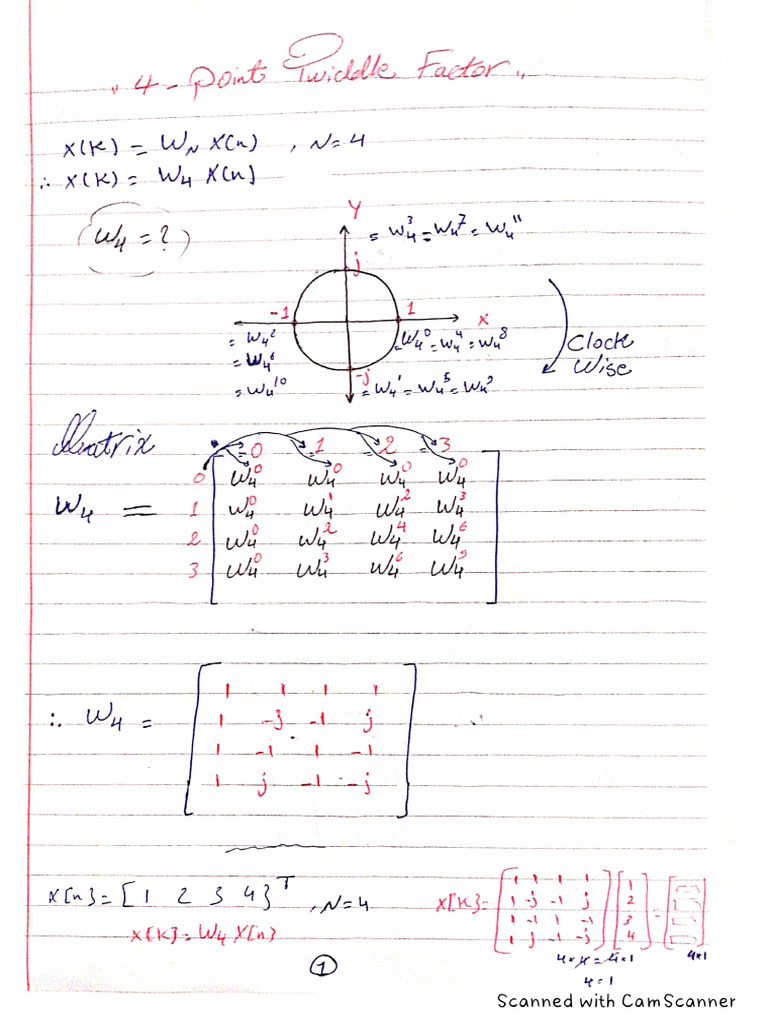 " 4-Point Twiddle Factor "
X(K) = W_N X(n) , N=4
∴ X(K) = W_4 X(n)
(W_4 = ?)
Y
= W_4^3 = W_4^7 = W_4^11
j
-1
1
X
= W_4^2
= W_4^6
= W_4^10
= W_4^0 = W_4^4 = W_4^8
-j
= W_4^1 = W_4^5 = W_4^9
Clock
Wise
Matrix
0 1 2 3
W_4 =
0 W_4^0 W_4^0 W_4^0 W_4^0
1 W_4^0 W_4^1 W_4^2 W_4^3
2 W_4^0 W_4^2 W_4^4 W_4^6
3 W_4^0 W_4^3 W_4^6 W_4^9
∴ W_4 =
1 1 1 1
1 -j -1 j
1 -1 1 -1
1 j -1 -j
X[n] = [1 2 3 4]^T , N=4
X[K] = W_4 X[n]
X[K] =
1 1 1 1 1
1 -j -1 j 2
1 -1 1 -1 3 =
1 j -1 -j 4
4*4 = 4*1
4*1
4=1
1
Scanned with CamScanner